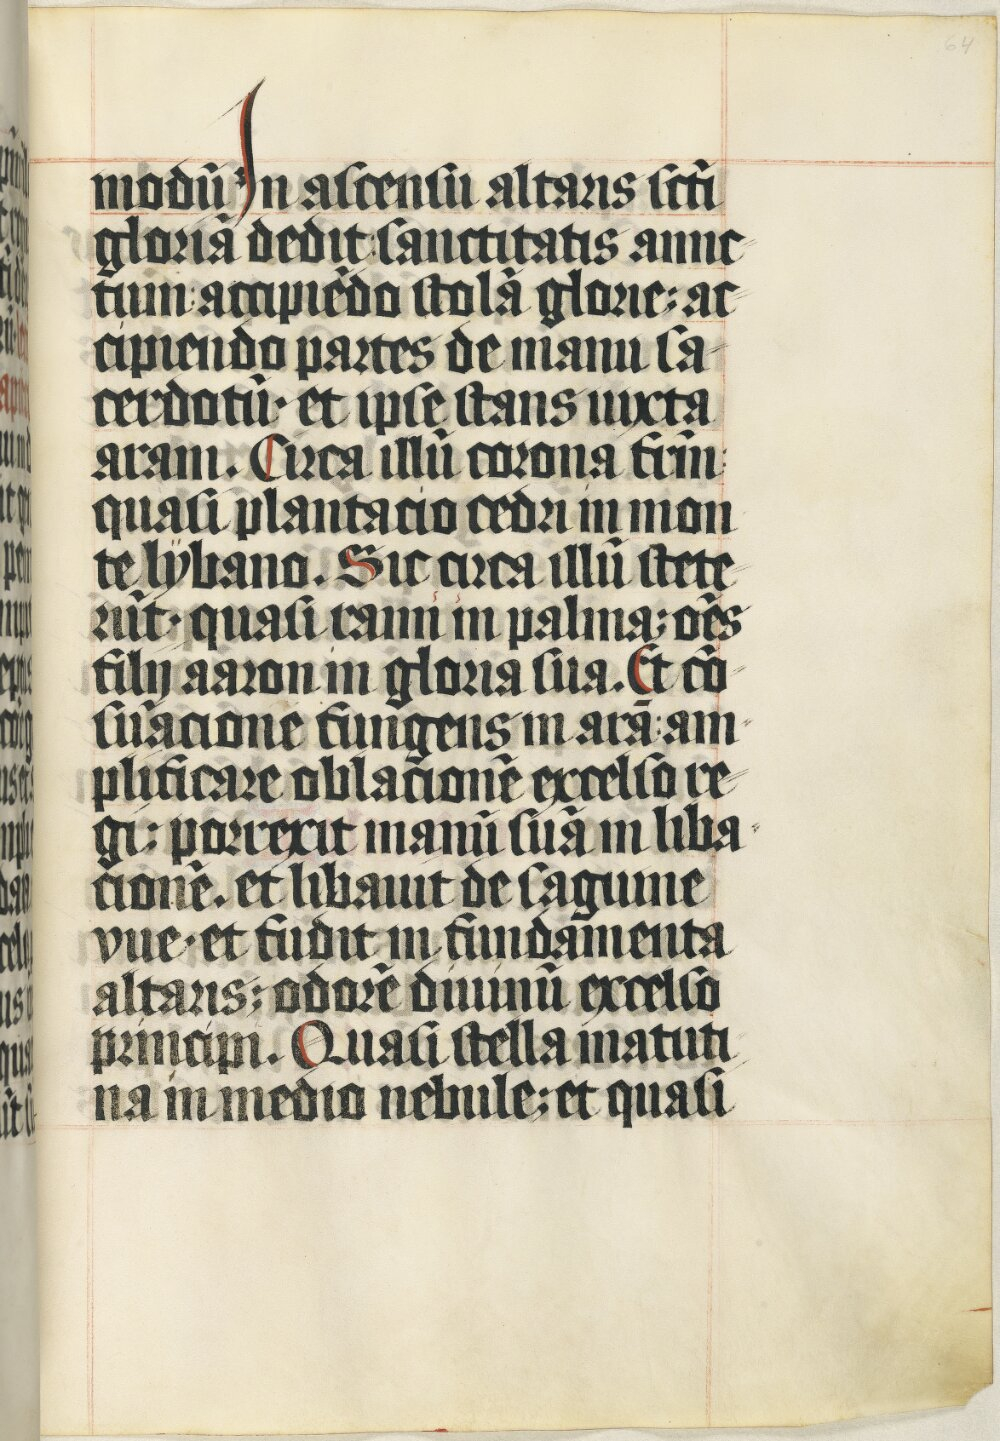 64
modū In ascensu altaris scti̅
gloriā dedit: sanctitatis amic
tum: accipiēdo stolā glorie; ac
cipiendo partes de manu sa
cerdotū. et ipse stans iuxta
aram. Circa illū corona frm̄:
quasi plantacio cedri in mon
te lybano. Sic circa illū stete
rūt. quasi rami in palma; oēs
filij aaron in gloria sua. Et cō
sūacione fungens in arā: am
plificare oblac̄ionē excelso re
gi: porrexit manū suā in liba
cionē. et libauit de sāguine
vue. et fudit in fundāmenta
altaris; odorē diuinū excelso
principi. Quasi stella matuti
na in medio nebule; et quasi